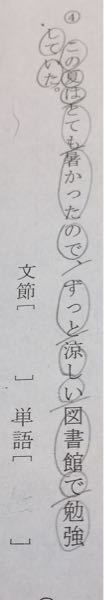 ④ この夏はとても暑かったので、ずっと涼しい図書館で勉強
していた。
文節［　　］ 単語［　　］